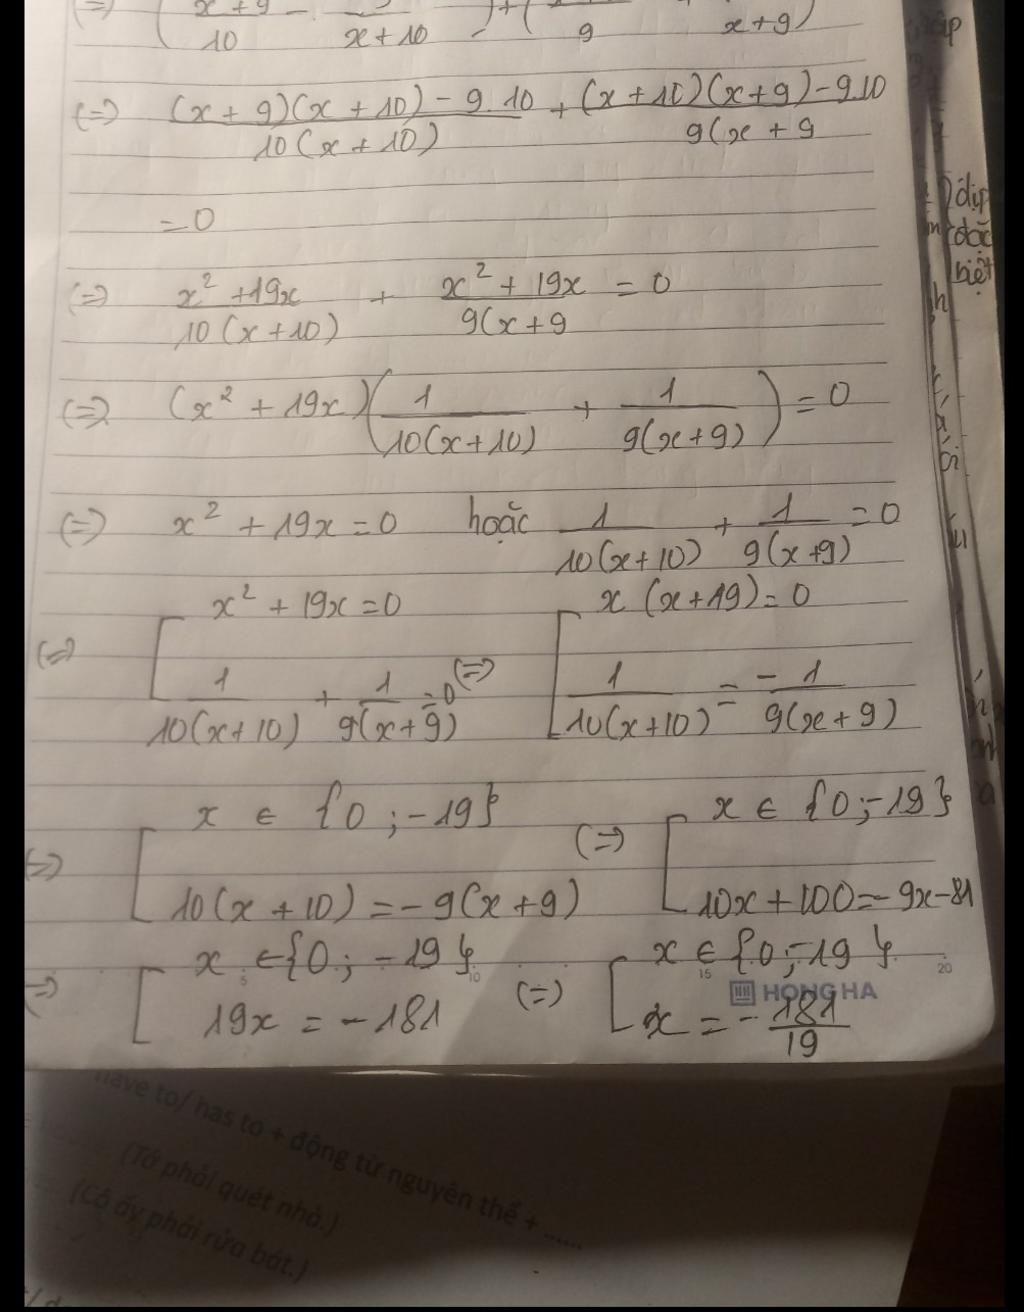 (=) ( x+9/10 - /x+10 ) + ( /9 /x+9 )
(=) (x+9)(x+10)-9.10/10(x+10) + (x+10)(x+9)-9.10/9(x+9
=0
(=) x²+19x/10(x+10) + x²+19x/9(x+9 = 0
(=) (x²+19x)(1/10(x+10) + 1/9(x+9)) = 0
(=) x²+19x=0 hoặc 1/10(x+10) + 1/9(x+9) = 0
(=) [ x²+19x=0 ; 1/10(x+10) + 1/9(x+9) = 0 (=) [ x(x+19)=0 ; 1/10(x+10) = -1/9(x+9)
(=) [ x ∈ {0;-19} ; 10(x+10)=-9(x+9) (=) [ x ∈ {0;-19} ; 10x+100=-9x-81
(=) [ x ∈{0;-19} ; 19x = -181 (=) [ x ∈{0;-19} ; x = -181/19
5 10 15 20
HONG HA
dịp
đặc
biệt
have to/ has to + động từ nguyên thể + ......
(Tớ phải quét nhà.)
(Cô ấy phải rửa bát.)